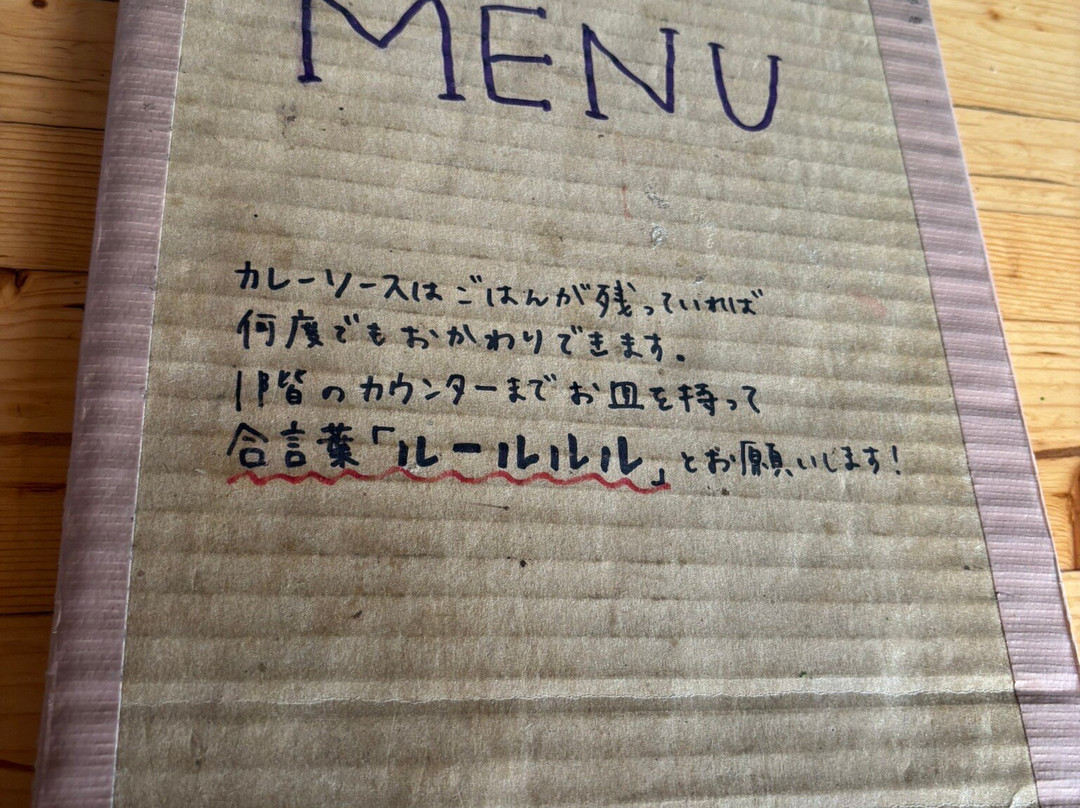 MENU
カレーソースはごはんが残っていれば
何度でもおかわりできます。
1階のカウンターまでお皿を持って
合言葉「ルールルル」とお願いします!